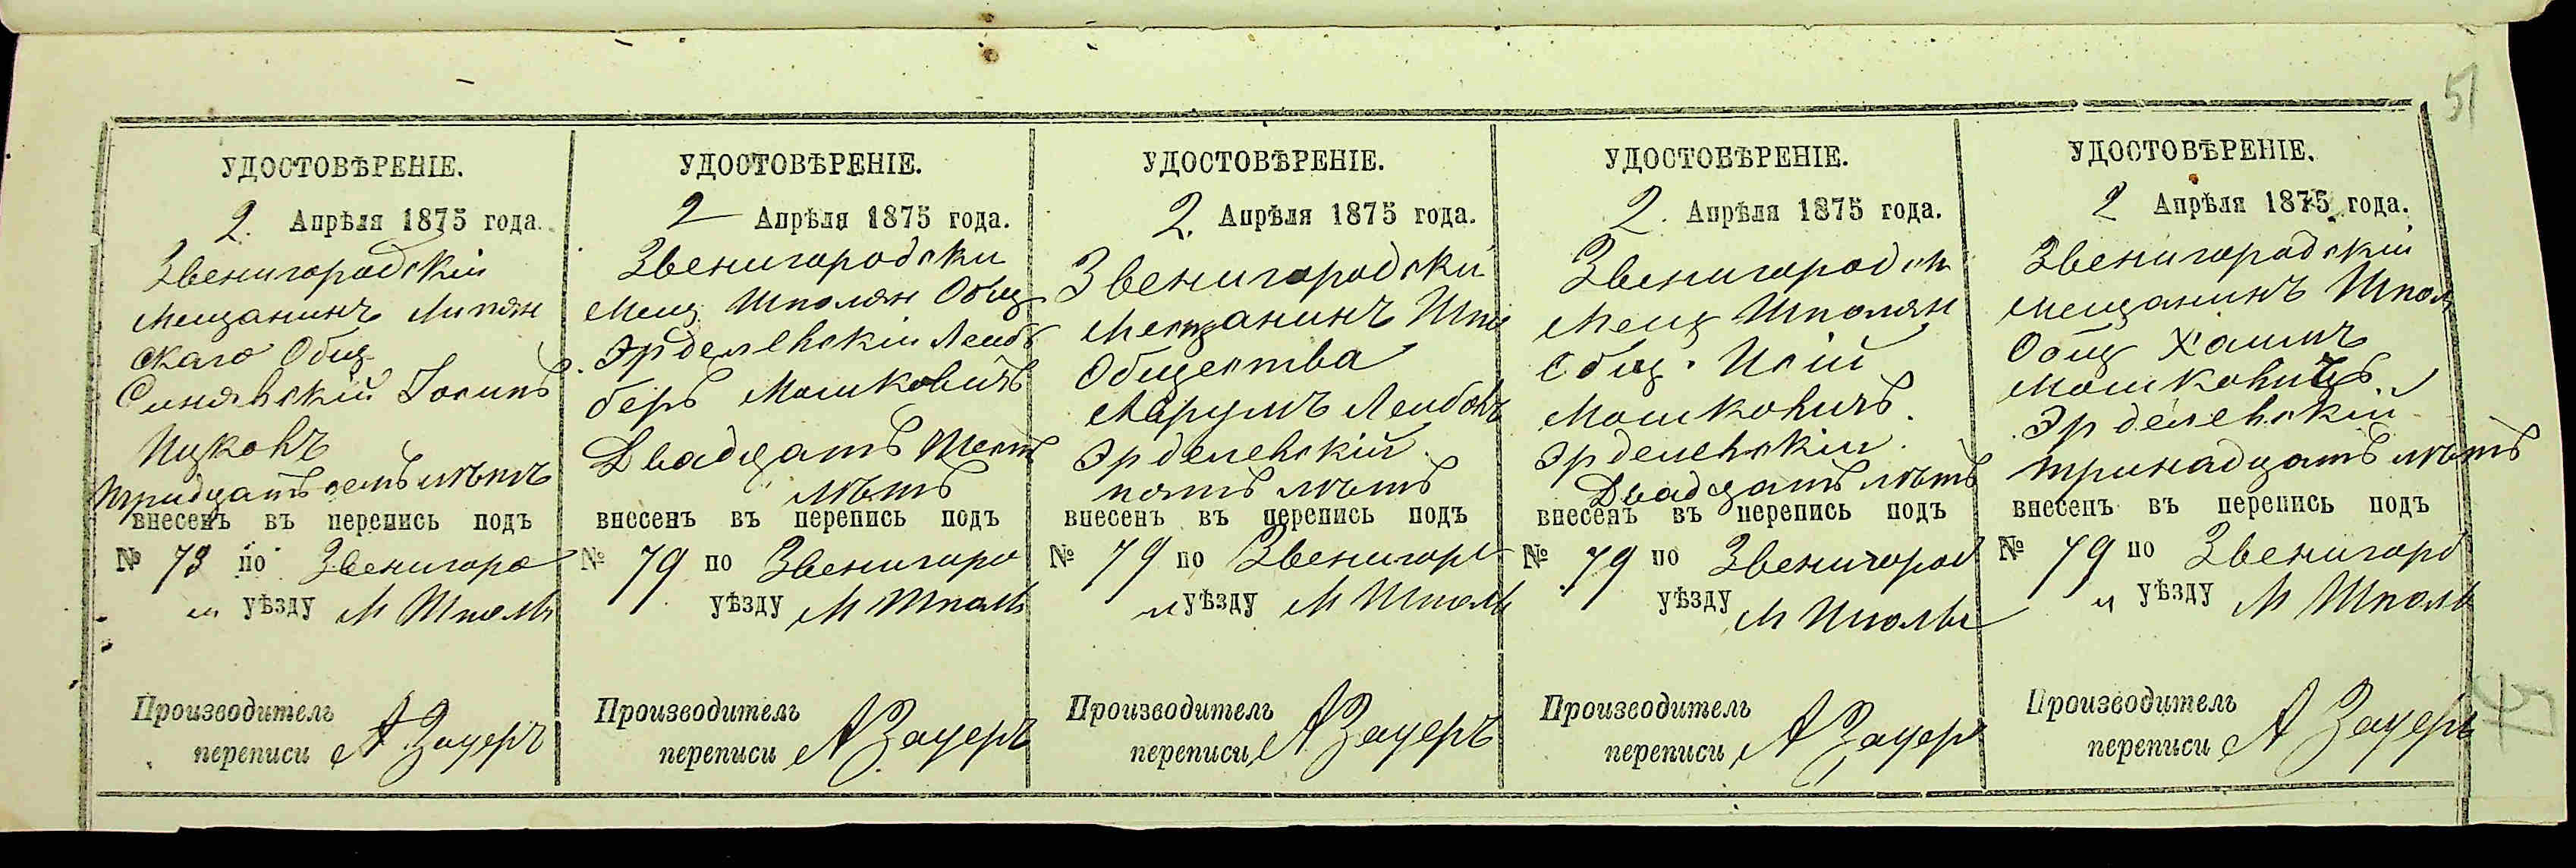 51
УДОСТОВѢРЕНІЕ.
2. Апрѣля 1875 года.
Звенигородскій
Мещанинъ Липян
скаго Общ
Синявскій Іосипъ
Ицковъ
тридцать семь лѣтъ
внесенъ въ перепись подъ
№ 73 по Звенигоро
уѣзду М Шполы
Производитель
переписи А Зауеръ
УДОСТОВѢРЕНІЕ.
2 Апрѣля 1875 года.
Звенигородски
Мещ Шполян Общ
Эрделевскій Леиб
беръ Мошковичъ
Двадцать шесть
лѣтъ
внесенъ въ перепись подъ
№ 79 по Звенигоро
уѣзду М Шполы
Производитель
переписи А Зауеръ
УДОСТОВѢРЕНІЕ.
2. Апрѣля 1875 года.
Звенигородски
Мещанинъ Шпо
Общества
Лейбовъ
Эрделевскій
пять лѣтъ
внесенъ въ перепись подъ
№ 79 по Звенигоро
уѣзду М Шполы
Производитель
переписи А Зауеръ
УДОСТОВѢРЕНІЕ.
2. Апрѣля 1875 года.
Звенигородск
Мещ Шполян
Общ.
Мошковичъ.
Эрделевскій.
Двадцать лѣтъ
внесенъ въ перепись подъ
№ 79 по Звенигород
уѣзду М Шполы
Производитель
переписи А Зауер
УДОСТОВѢРЕНІЕ.
2 Апрѣля 1875 года.
Звенигородскій
мещанинъ Шпол
Общ Хаимъ
Мошковичъ
Эрделевскій
тринадцать лѣтъ
внесенъ въ перепись подъ
№ 79 по Звенигоро
уѣзду М Шполы
Производитель
переписи А Зауеръ